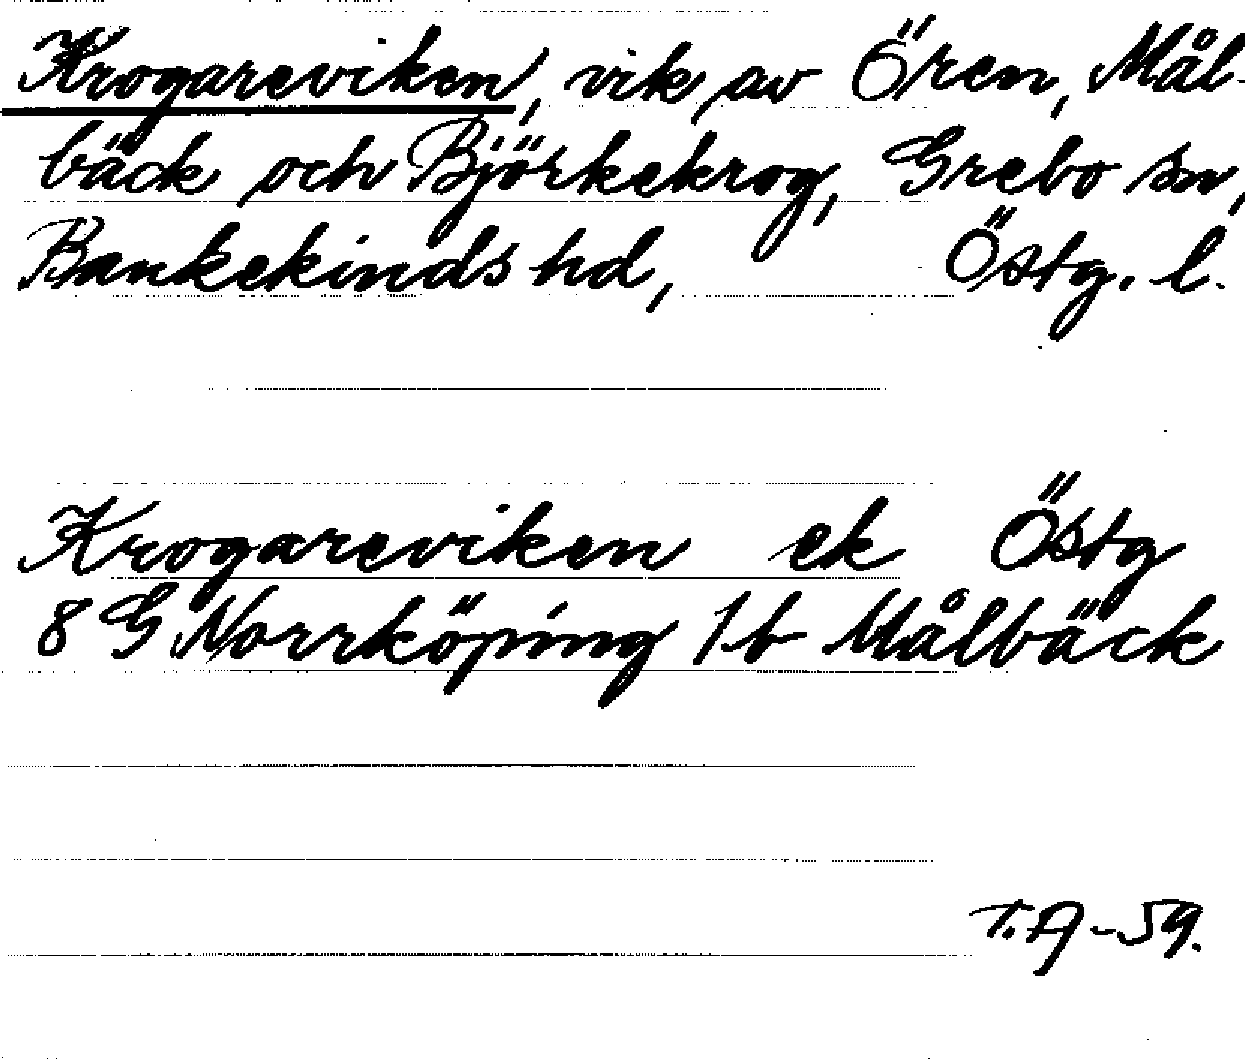 Krogareviken, vik av Ören, Mål-
bäck och Björkekrog, Grebo sn,
Bankekinds hd, Östg. l.
Krogareviken ek Östg
8 G Norrköping 1b Målbäck
T.A-59.